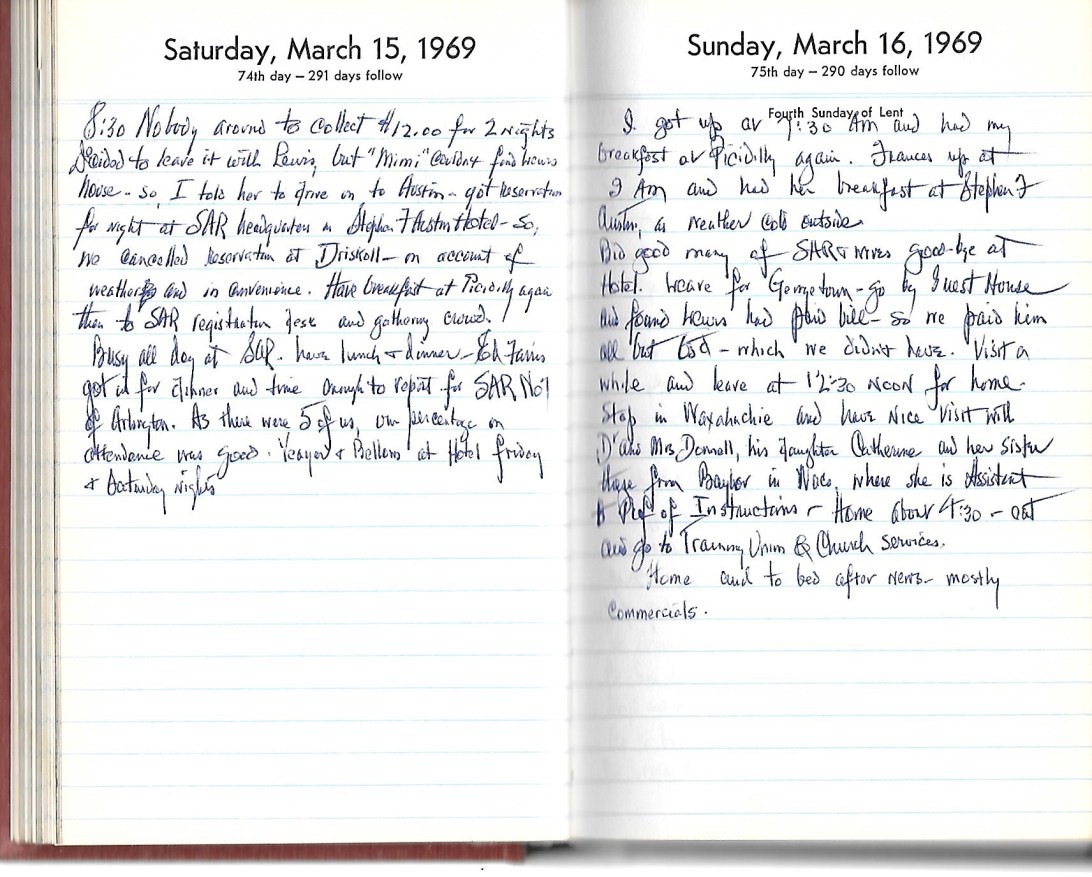 Saturday, March 15, 1969
74th day – 291 days follow
8:30 Nobody around to collect $12.00 for 2 nights
Decided to leave it with Lewis, but "Mimi" couldnt find
house – so, I told her to drive on to Austin – got reservation
for night at SAR headquarters in Stephen F Austin Hotel – so,
we cancelled reservation at Driskoll – on account of
weather and in convenience. Have breakfast at Picidilly again
then to SAR registration desk and gathering crowd.
Busy all day at SAR. have lunch & dinner – Ed
got it for dinner and time enough to report for SAR No 1
of Arlington. As there were 5 of us, our percentage on
attendance was good. Yeager & Bellems at Hotel friday
& Saturday nights
Sunday, March 16, 1969
75th day – 290 days follow
Fourth Sunday of Lent
I got up at 7:30 Am and had my
breakfast at Picidilly again. Frances up at
9 Am and had her breakfast at Stephen F
Austin, as weather cold outside
Bid good many of SAR & wives good-bye at
Hotel. Leave for Georgetown – go by Guest House
and found Lewis had paid bill – so we paid him
all but – which we didn't have. Visit a
while and leave at 12:30 Noon for home.
Stop in Waxahachie and have Nice Visit with
Dr and Mrs Donnell, his daughter Catherine and her sister
there from Baylor in Waco, where she is Assistant
Prof of Instructions – Home about 4:30 – eat
and go to Training Union & Church services.
Home and to bed after news – mostly
Commercials.